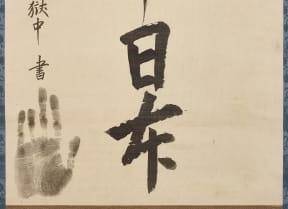 日本
獄中 書